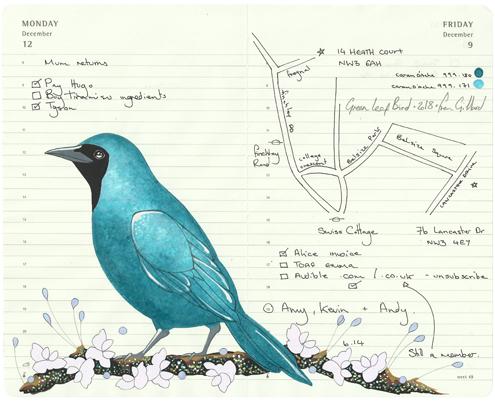 MONDAY
December
12
Mum returns
Pay Hugo
Buy Tiramisu ingredients
Tyson
FRIDAY
December
9
14 HEATH COURT
NW3 6AH
caran d'ache 999.180
caran d'ache 999.171
Green Leaf Bird - 2018 - from
Frognal
Finchley Rd
Finchley
Road
college
crescent
Belsize Park
Belsize Square
LANCASTER DRIVE
Swiss Cottage
7b Lancaster Dr
NW3 4EY
Alice invoice
Audible .com / .co.uk - unsubscribe
Amy, Kevin + Andy
6.14
Still a member.
week 49